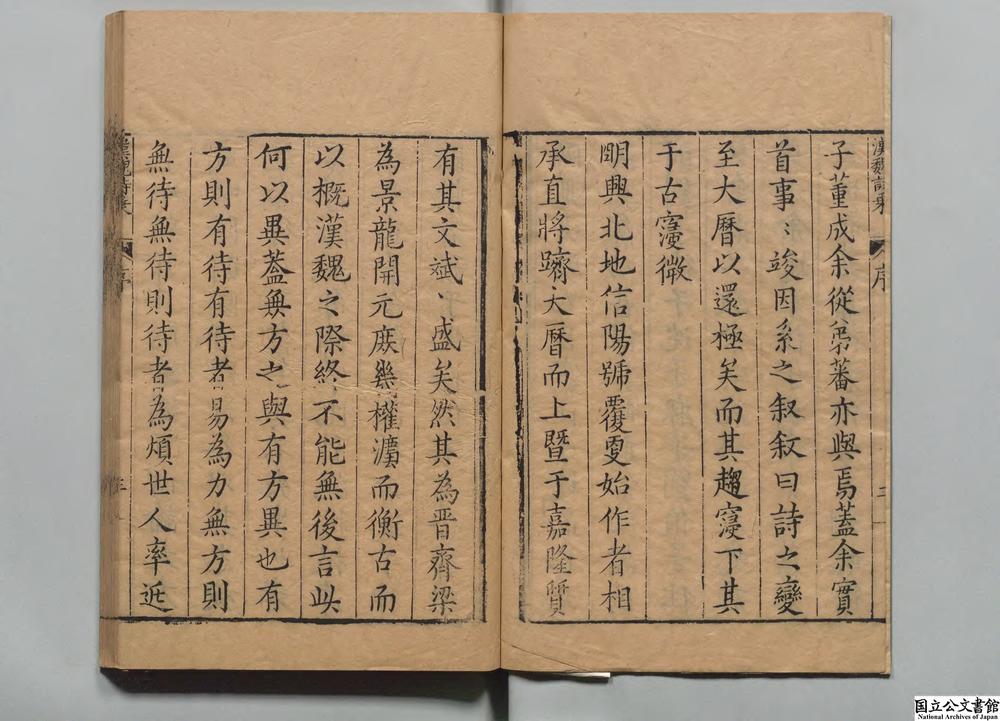 漢魏詩乘
序
子董成余從弟蕃亦與焉蓋余實
首事〻竣因系之叙叙曰詩之變
至大曆以還極矣而其趨寖下其
于古寖微
明興北地信陽號覆夏始作者相
承直將躋大曆而上暨于嘉隆質
有其文斌〻盛矣然其為晉齊梁
為景龍開元庶幾權瀆而衡古而
以概漢魏之際終不能無後言此
何以異蓋無方之與有方異也有
方則有待有待者易為力無方則
無待無待則待者為煩世人率近
漢魏詩乘
序
国立公文書館
National Archives of Japan